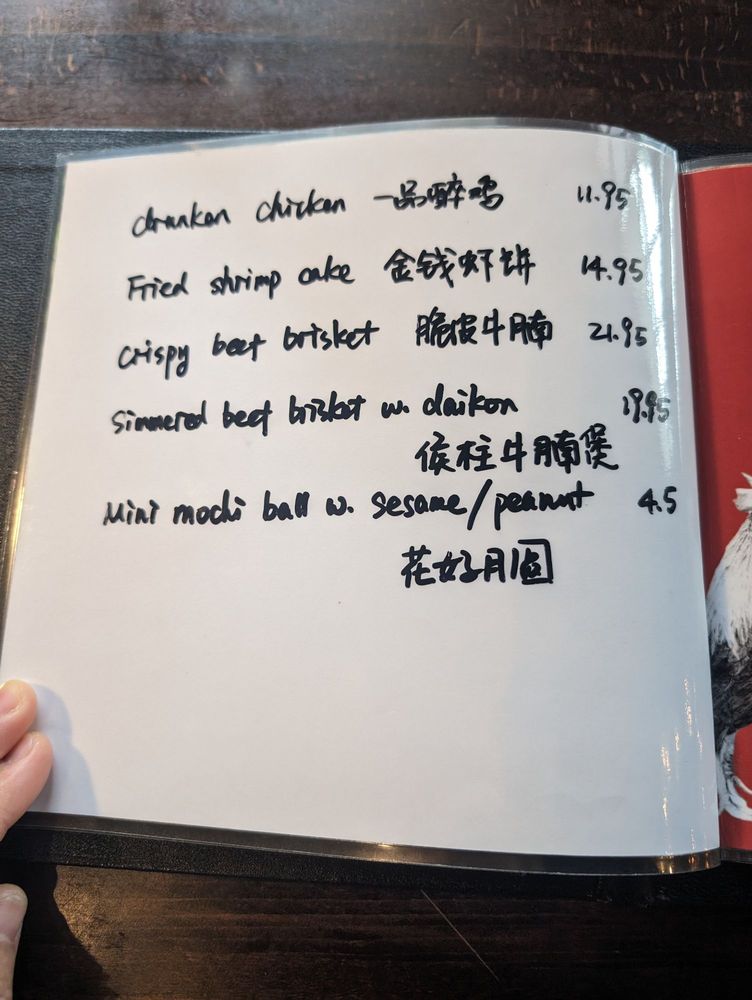 drunken chicken 一品醉鸡 11.95
Fried shrimp cake 金钱虾饼 14.95
crispy beef brisket 脆皮牛腩 21.95
simmered beef brisket w. daikon 19.95
侯柱牛腩煲
Mini mochi ball w. sesame/peanut 4.5
花好月圆